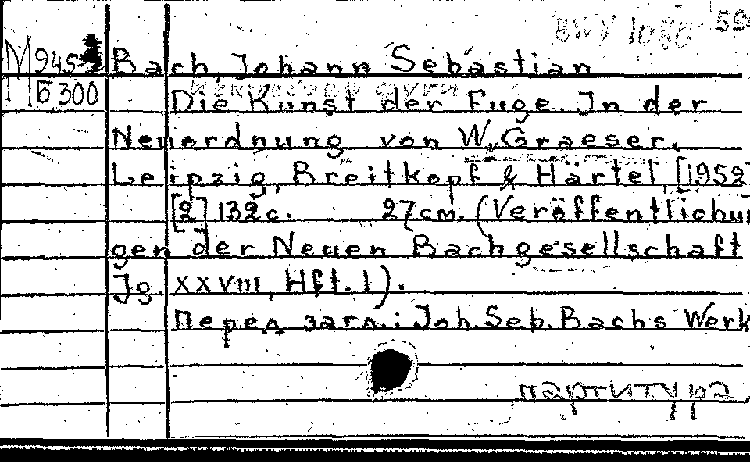 BWV 1080 59
М 945
Б 300
Bach, Johann Sebastian
Die Kunst der Fuge. In der
Neuordnung von W. Graeser.
Leipzig, Breitkopf & Härtel, [1952
[2] 132 c. 27 cm. (Veröffentlichun
gen der Neuen Bachgesellschaft
Jg. XXVIII, Hft. 1).
Перед загл.: Joh. Seb. Bachs Werk
партитура